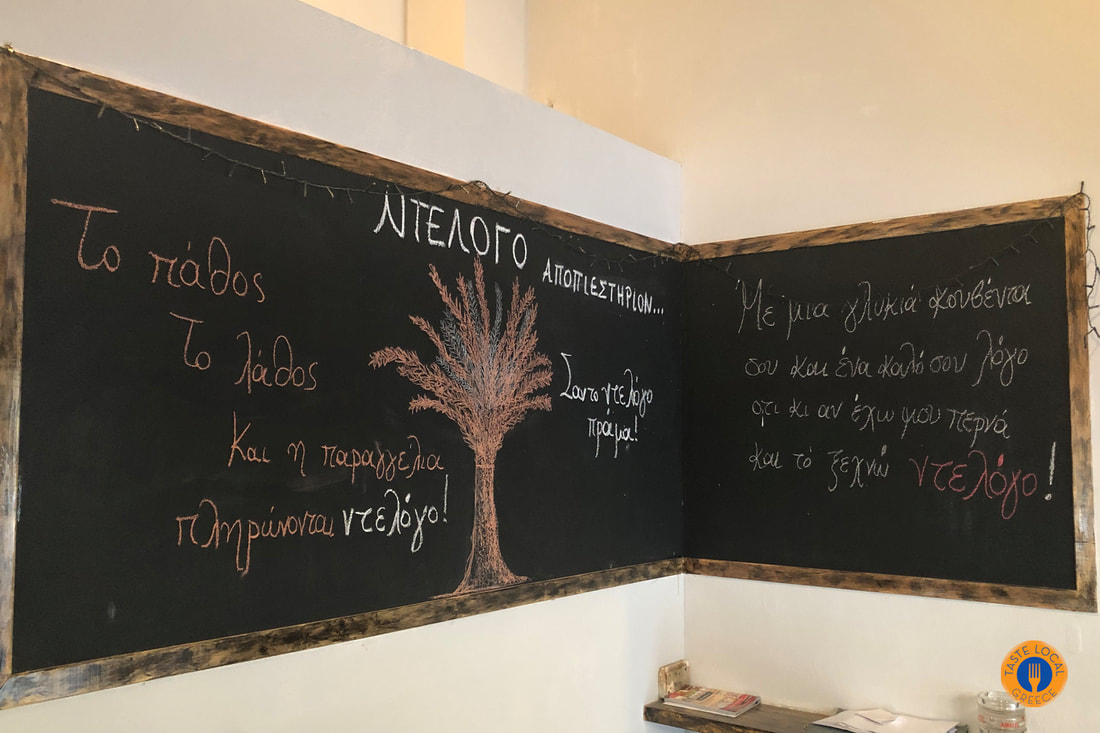 ΝΤΕΛΟΓΟ
ΑΠΟΠΙΕΣΤΗΡΙΟΝ...
Το πάθος
Το λάθος
Και η παραγγελια
πληρώνονται ντελόγο!
Σαν το ντελόγο
πράμα!
Με μια γλυκιά κουβέντα
σου και ένα καλό σου λόγο
οτι κι αν έχω μου περνά
και τό ξεχνώ ντελόγο!
TASTE LOCAL
GREECE